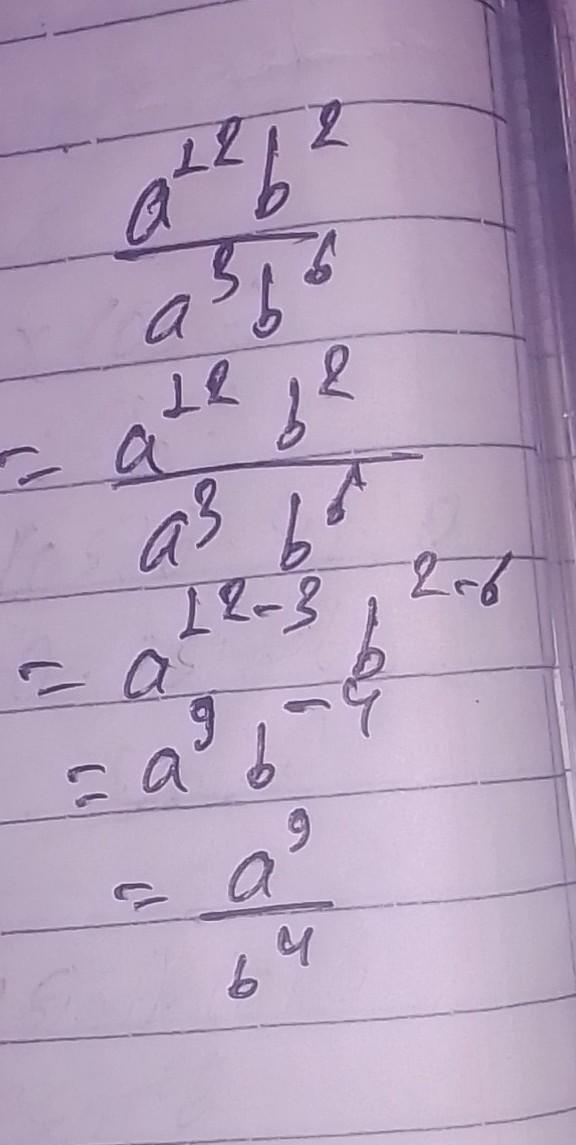 a¹²b²
/
a³b⁶
= a¹² b²
/
a³ b⁶
= a¹²⁻³ b²⁻⁶
= a⁹ b⁻⁴
= a⁹
/
b⁴